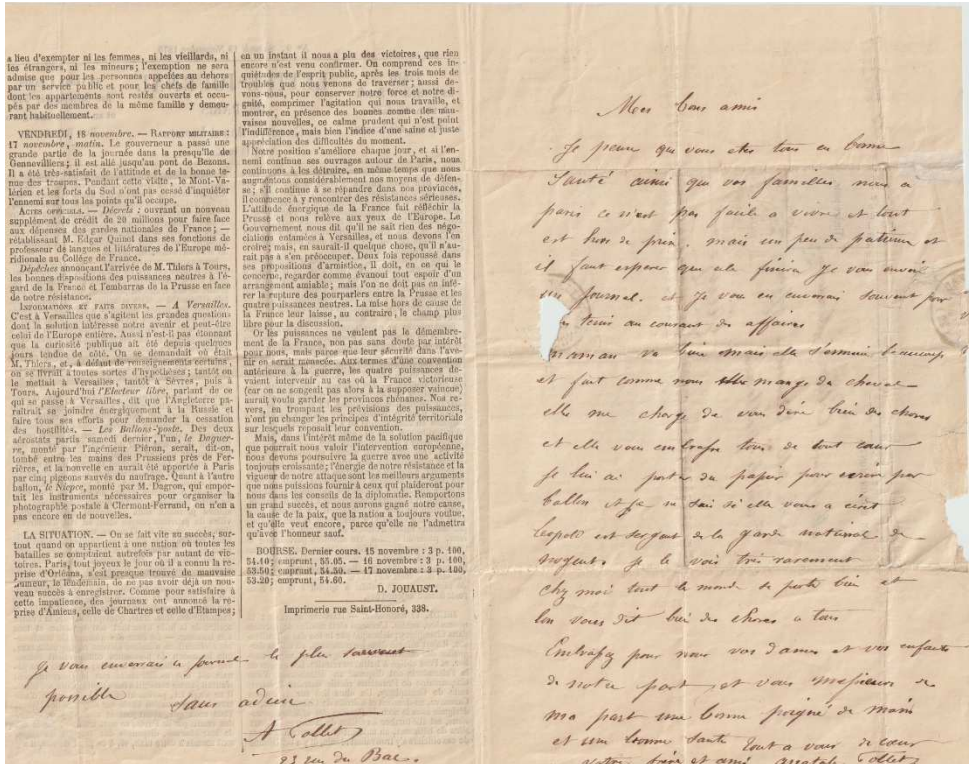 a lieu d'exempter ni les femmes, ni les vieillards, ni
les étrangers, ni les mineurs; l'exemption ne sera
admise que pour les personnes appelées au dehors
par un service public et pour les chefs de famille
dont les appartements sont restés ouverts et occu-
pés par des membres de la même famille y demeu-
rant habituellement.
VENDREDI, 18 novembre. — RAPPORT MILITAIRE:
17 novembre, matin. Le gouverneur a passé une
grande partie de la journée dans la presqu'île de
Gennevilliers; il est allé jusqu'au pont de Bezons.
Il a été très-satisfait de l'attitude et de la bonne te-
nue des troupes. Pendant cette visite, le Mont-Va-
lérien et les forts du Sud n'ont pas cessé d'inquiéter
l'ennemi sur tous les points qu'il occupe.
ACTES OFFICIELS. — Décrets: ouvrant un nouveau
supplément de crédit de 20 millions pour faire face
aux dépenses des gardes nationales de France; —
rétablissant M. Edgar Quinet dans ses fonctions de
professeur de langues et littératures de l'Europe mé-
ridionale au Collége de France.
Dépêches annonçant l'arrivée de M. Thiers à Tours,
les bonnes dispositions des puissances neutres à l'é-
gard de la France et l'embarras de la Prusse en face
de notre résistance.
INFORMATIONS ET FAITS DIVERS. — A Versailles.
C'est à Versailles que s'agitent les grandes questions
dont la solution intéresse notre avenir et peut-être
celui de l'Europe entière. Aussi n'est-il pas étonnant
que la curiosité publique ait été depuis quelques
jours tendue de côté. On se demandait où était
M. Thiers, et, à défaut de renseignements certains,
on se livrait à toutes sortes d'hypothèses; tantôt on
le mettait à Versailles, tantôt à Sèvres, puis à
Tours. Aujourd'hui l'Electeur libre, parlant de ce
qui se passe à Versailles, dit que l'Angleterre pa-
raîtrait se joindre énergiquement à la Russie et
faire tous ses efforts pour demander la cessation
des hostilités. — Les Ballons-poste. Des deux
aérostats partis samedi dernier, l'un, le Daguer-
re, monté par l'ingénieur Piéron, serait, dit-on,
tombé entre les mains des Prussiens près de Fer-
rières, et la nouvelle en aurait été apportée à Paris
par cinq pigeons sauvés du naufrage. Quant à l'autre
ballon, le Niepce, monté par M. Dagron, qui empor-
tait les instruments nécessaires pour organiser la
photographie postale à Clermont-Ferrand, on n'en a
pas encore eu de nouvelles.
LA SITUATION. — On se fait vite au succès, sur-
tout quand on appartient à une nation où toutes les
batailles se comptaient autrefois par autant de vic-
toires. Paris, tout joyeux le jour où il a connu la re-
prise d'Orléans, s'est presque trouvé de mauvaise
humeur, le lendemain, de ne pas avoir déjà un nou-
veau succès à enregistrer. Comme pour satisfaire à
cette impatience, des journaux ont annoncé la re-
prise d'Amiens, celle de Chartres et celle d'Etampes;
en un instant il nous a plu des victoires, que rien
encore n'est venu confirmer. On comprend ces in-
quiétudes de l'esprit public, après les trois mois de
troubles que nous venons de traverser; aussi de-
vons-nous, pour conserver notre force et notre di-
gnité, comprimer l'agitation qui nous travaille, et
montrer, en présence des bonnes comme des mau-
vaises nouvelles, ce calme prudent qui n'est point
l'indifférence, mais bien l'indice d'une saine et juste
appréciation des difficultés du moment.
Notre position s'améliore chaque jour, et si l'en-
nemi continue ses ouvrages autour de Paris, nous
continuons à les détruire, en même temps que nous
augmentons considérablement nos moyens de défen-
se; s'il continue à se répandre dans nos provinces,
il commence à y rencontrer des résistances sérieuses.
L'attitude énergique de la France fait réfléchir la
Prusse et nous relève aux yeux de l'Europe. Le
Gouvernement nous dit qu'il ne sait rien des négo-
ciations entamées à Versailles, et nous devons l'en
croire; mais, en saurait-il quelque chose, qu'il n'au-
rait pas à s'en préoccuper. Deux fois repoussé dans
ses propositions d'armistice, il doit, en ce qui le
concerne, regarder comme évanoui tout espoir d'un
arrangement amiable; mais l'on ne doit pas en infé-
rer la rupture des pourparlers entre la Prusse et les
quatre puissances neutres. La mise hors de cause de
la France leur laisse, au contraire, le champ plus
libre pour la discussion.
Or les puissances ne veulent pas le démembre-
ment de la France, non pas sans doute par intérêt
pour nous, mais parce que leur sécurité dans l'ave-
nir en serait menacée. Aux termes d'une convention
antérieure à la guerre, les quatre puissances de-
vaient intervenir au cas où la France victorieuse
(car on ne songeait alors à la supposer vaincue)
aurait voulu garder les provinces rhénanes. Nos re-
vers, en trompant les prévisions des puissances,
n'ont pu changer les principes d'intégrité territoriale
sur lesquels reposait leur convention.
Mais, dans l'intérêt même de la solution pacifique
que pourrait nous valoir l'intervention européenne,
nous devons poursuivre la guerre avec une activité
toujours croissante; l'énergie de notre résistance et la
vigueur de notre attaque sont les meilleurs arguments
que nous puissions fournir à ceux qui plaideront pour
nous dans les conseils de la diplomatie. Remportons
un grand succès, et nous aurons gagné notre cause,
la cause de la paix, que la nation a toujours voulue,
et qu'elle veut encore, parce qu'elle ne l'admettra
qu'avec l'honneur sauf.
BOURSE. Dernier cours. 15 novembre: 3 p. 100,
54.10; emprunt, 55.05. — 16 novembre: 3 p. 100,
53.50; emprunt, 54.50. — 17 novembre: 3 p. 100,
53.20; emprunt, 54.60.
D. JOUAUST.
Imprimerie rue Saint-Honoré, 338.
Je vous enverrais ce journal le plus souvent
possible sans adieu
A Collet
23 rue du Bac.
Mes bons amis
Je pense que vous etes tous en bonne
Santé ainsi que vos familles, nous a
paris ce n'est pas facile a vivre et tout
est hors de prix, mais un peu de patience et
il faut esperer que cela finira Je vous envoie
un Journal. et Je vous en enverrais souvent pour
tenir au courant des affaires
maman va bien mais elle s'ennuie beaucoup
et fait comme nous mange du cheval
elle me charge de vous dire bien des choses
et elle vous embrasse tous de tout cœur
Je lui ai porter du papier pour ecrire par
ballon et Je ne sais si elle vous a ecrit
Leopold est sergent de la garde national de
nogent. Je le vois très rarement
chez moi tout le monde se porte bien et
lon vous dit bien des choses a tous
Embrassez pour nous vos dames et vos enfants
de notre part, et vous messieurs de
ma part une bonne poigné de main
et une bonne Sante tout a vous de cœur
votre frère et ami anatole Collet